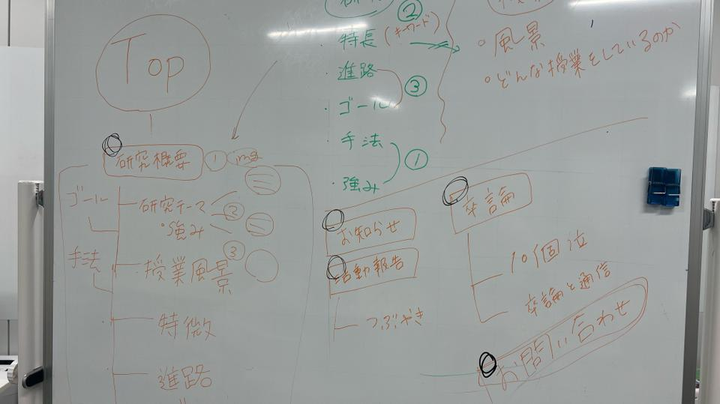 Top
研究概要
①
ゴール
研究テーマ
②
・強み
手法
授業風景
③
特徴
進路
②
・特長(キーワード)
・進路
③
・ゴール
・手法
①
・強み
・風景
・どんな授業をしているのか
お知らせ
活動報告
つぶやき
卒論
10個位
卒論と通信
お問い合わせ